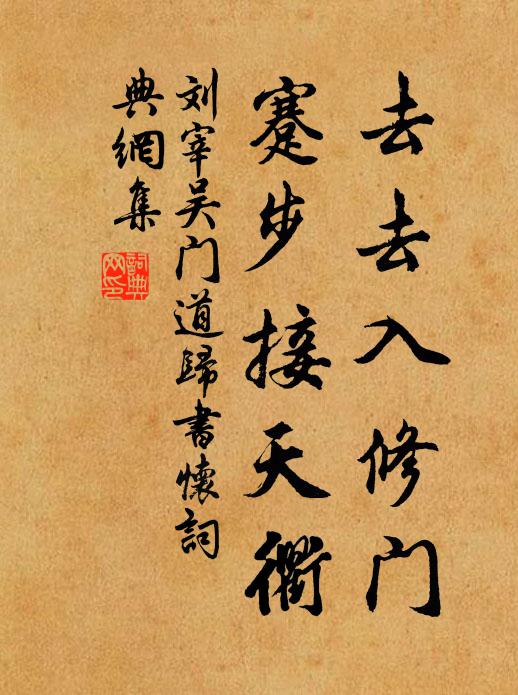 去去入修门
蹇步接天衢
刘宰吴门道归书怀词
典網集
詞典
网印